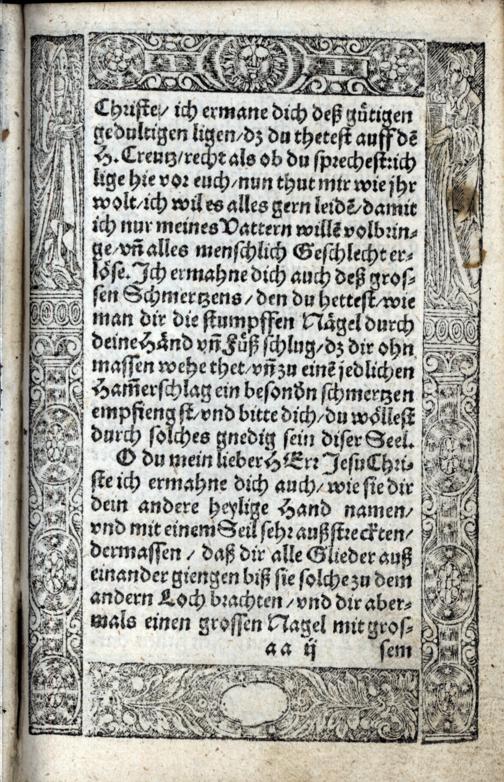 Christe/ ich ermane dich deß gütigen
gedultigen ligen/dz du thetest auff dē
H. Creutz/recht als ob du sprechest:ich
lige hie vor euch/nun thut mir wie jhr
wolt/ich wil es alles gern leidē/damit
ich nur meines Vattern willē volbrin-
ge/vñ alles menschlich Geschlecht er-
löse. Ich ermahne dich auch deß gros-
sen Schmertzens/den du hettest/wie
man dir die stumpffen Nägel durch
deine Händ vñ Füß schlug/dz dir ohn
massen wehe thet/vñ zu einē jedlichen
Ham̄erschlag ein besondn schmertzen
empfiengst/vnd bitte dich/du wöllest
durch solches gnedig sein diser Seel.
O du mein lieber HErr Jesu Chri-
ste ich ermahne dich auch/wie sie dir
dein andere heylige Hand namen/
vnd mit einem Seil sehr außstreckten/
dermassen/daß dir alle Glieder auß
einander giengen biß sie solche zu dem
andern Loch brachten/vnd dir aber-
mals einen grossen Nagel mit gros-
aa ij sem